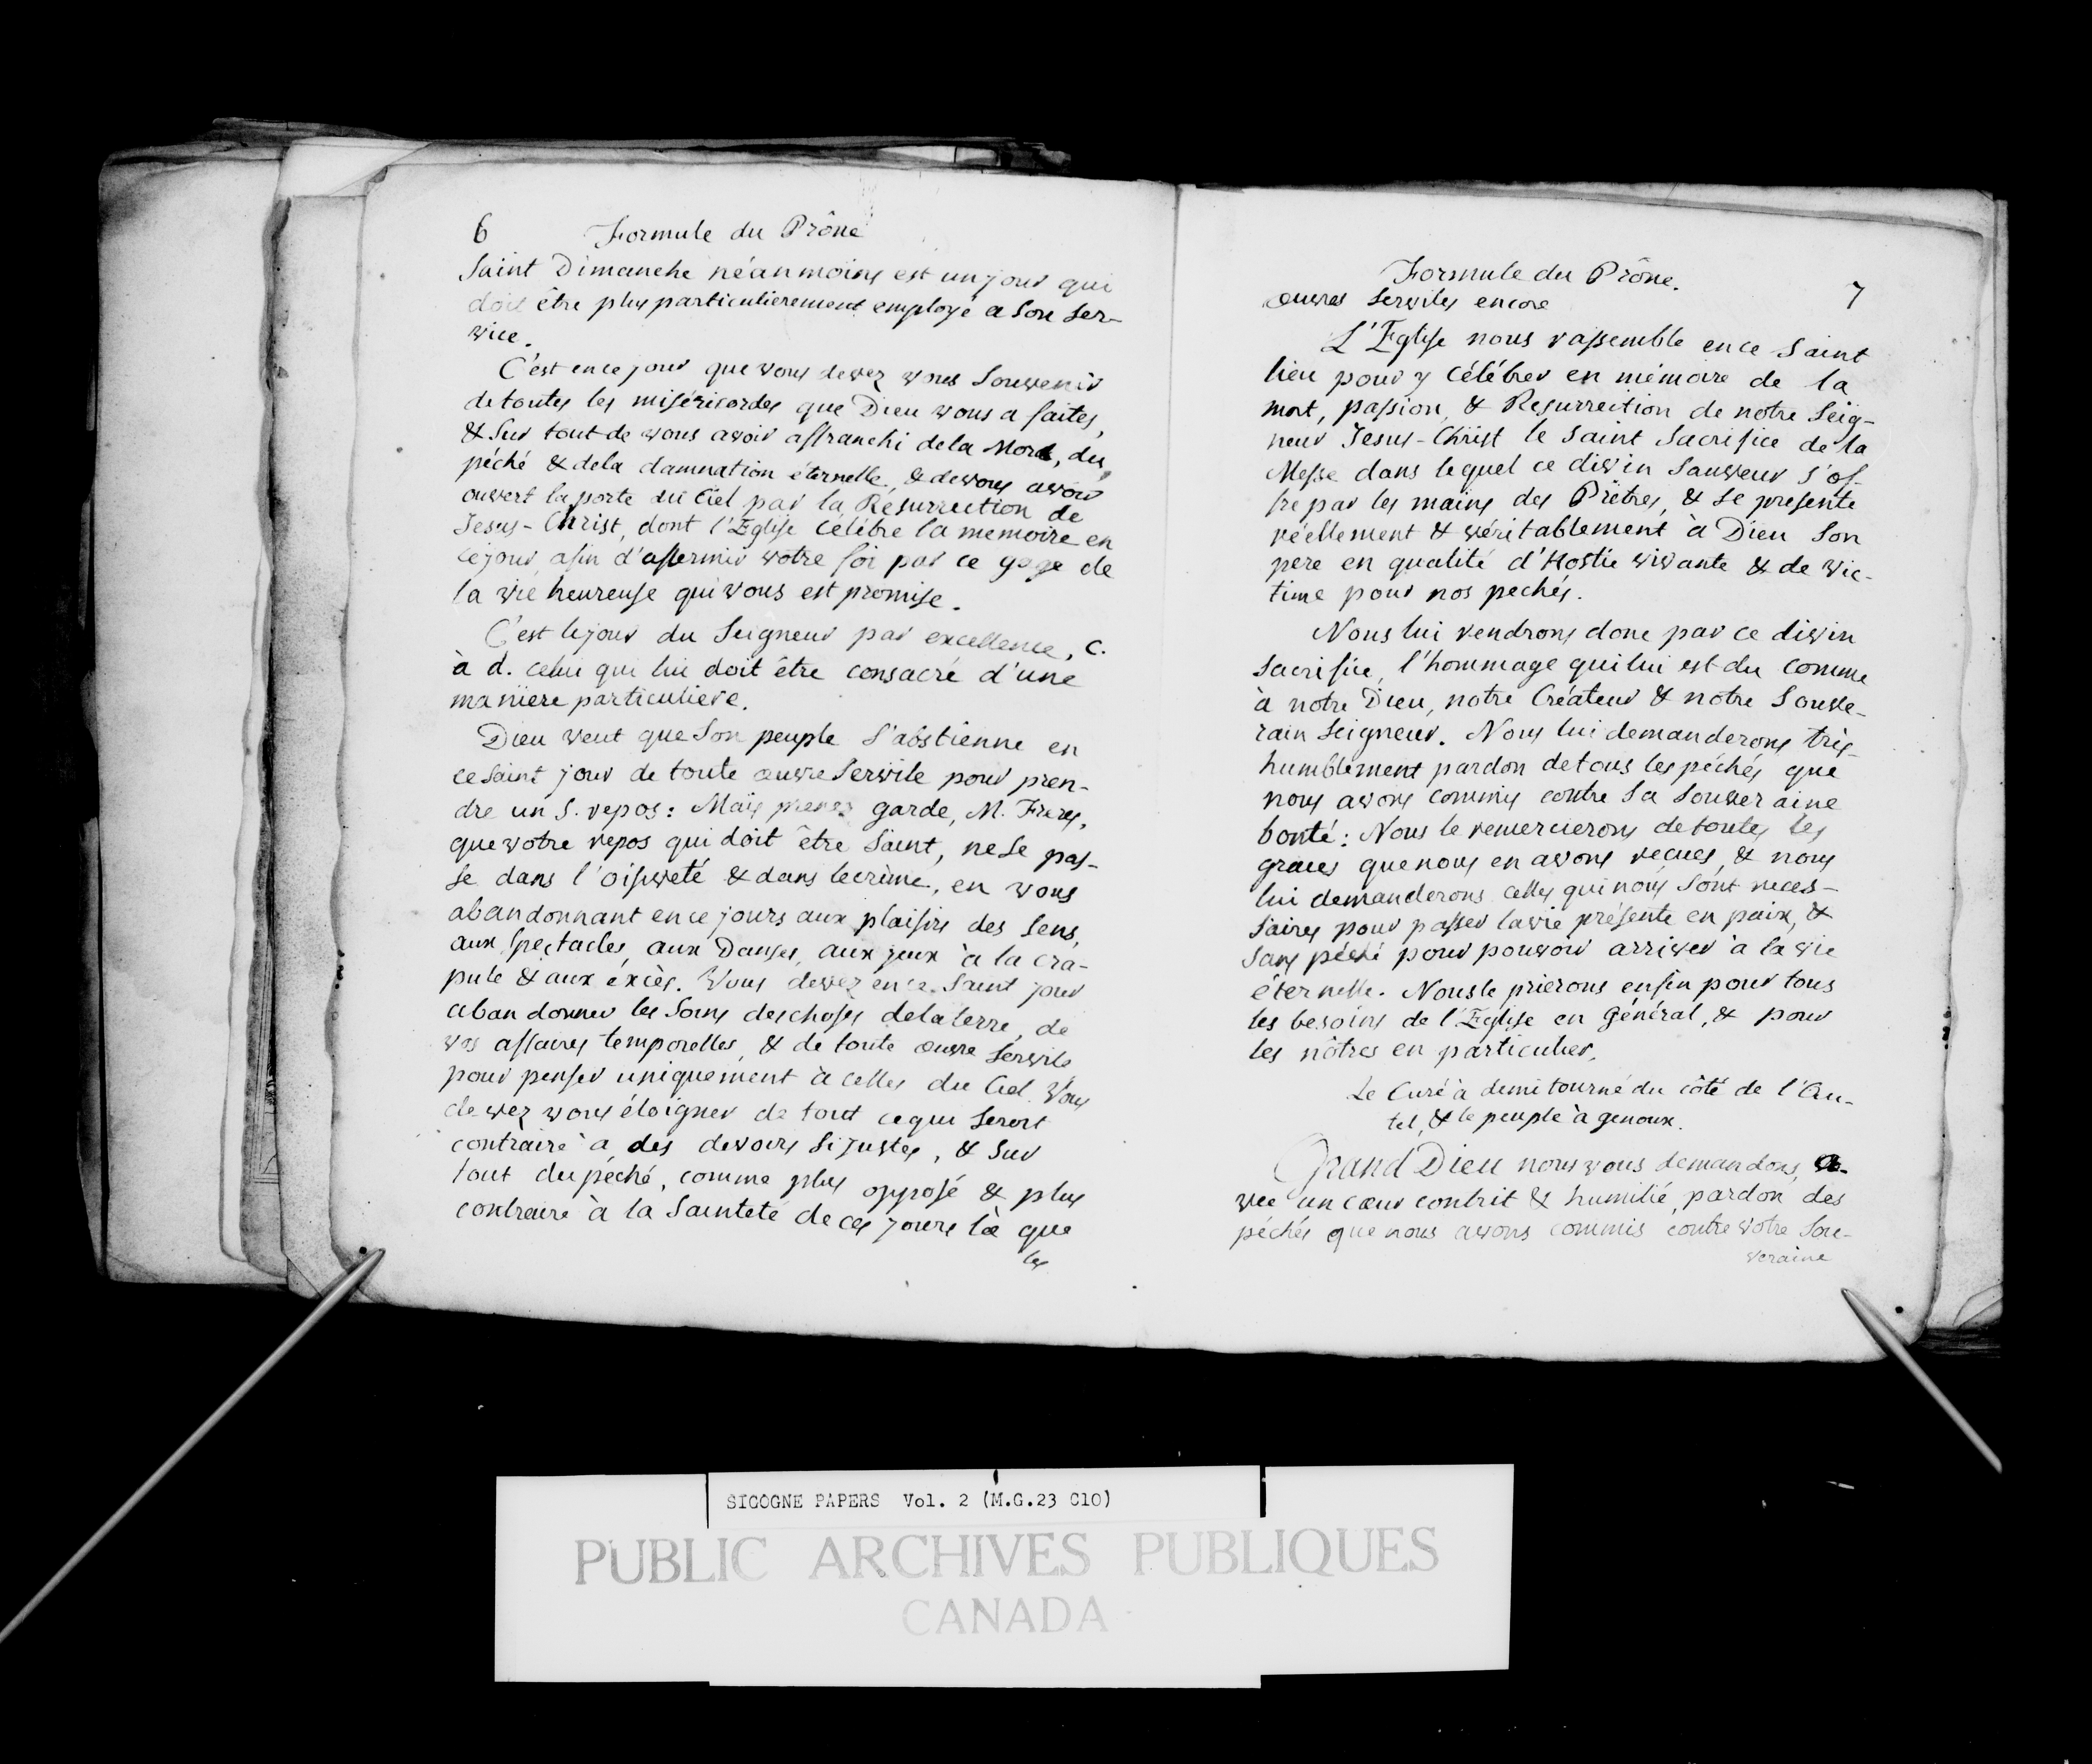 6 Formule du Prône
Saint Dimanche néanmoins est un jour qui
doit être plus particulierement employé a son ser-
vice.
C'est en ce jour que vous devez vous souvenir
de toutes les miséricordes que Dieu vous a faites,
& sur tout de vous avoir affranchi de la Mort, du
péché & de la damnation éternelle, & de vous avoir
ouvert la porte du Ciel par la Résurrection de
Jesus-Christ, dont l'Eglise célébre la memoire en
ce jour, afin d'affermir votre foi par ce gage de
la vie heureuse qui vous est promise.
C'est le jour du Seigneur par excellence, c.
à d. celui qui lui doit être consacré d'une
maniere particuliere.
Dieu veut que son peuple s'abstienne en
ce saint jour de toute œuvre servile pour pren-
dre un S. repos: Mais prenez garde, M. Freres,
que votre repos qui doit être saint, ne se pas-
se dans l'oisiveté & dans le crime, en vous
abandonnant en ce jours aux plaisirs des sens,
aux spectacles, aux Danses, aux jeux à la cra-
pule & aux excès. Vous devez en ce saint jour
abandonner les soins des choses de la terre, de
vos affaires temporelles, & de toute œuvre servile
pour penser uniquement à celles du Ciel. Vous
devez vous éloigner de tout ce qui seroit
contraire à des devoirs si justes, & sur
tout du péché, comme plus opposé & plus
contraire à la Sainteté de ces jours là que
les
Formule du Prône. 7
œuvres serviles encore
L'Eglise nous rassemble en ce saint
lieu pour y célébrer en mémoire de la
mort, passion, & Resurrection de notre Seig-
neur Jesus-Christ le saint Sacrifice de la
Messe dans lequel ce divin Sauveur s'of-
fre par les mains des Prêtres, & se presente
réellement & véritablement à Dieu son
pere en qualité d'Hostie vivante & de vic-
time pour nos pechés.
Nous lui rendrons donc par ce divin
sacrifice, l'hommage qui lui est du comme
à notre Dieu, notre Créateur & notre Souve-
rain Seigneur. Nous lui demanderons très-
humblement pardon de tous les péchés que
nous avons commis contre sa souveraine
bonté: Nous le remercierons de toutes les
graces que nous en avons reçues, & nous
lui demanderons celles qui nous sont neces-
saires pour passer la vie présente en paix, &
sans péché pour pouvoir arriver à la vie
éternelle. Nous le prierons enfin pour tous
les besoins de l'Eglise en Général, & pour
les nôtres en particulier.
Le Curé à demi tourné du côté de l'Au-
tel, & le peuple à genoux.
Grand Dieu nous vous demandons, a-
vec un cœur contrit & humilié, pardon des
péchés que nous avons commis contre votre sou-
veraine
SICOGNE PAPERS Vol. 2 (M.G.23 C10)
PUBLIC ARCHIVES PUBLIQUES
CANADA